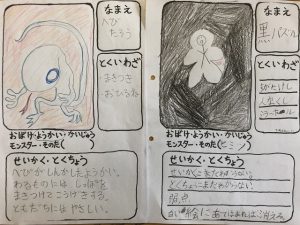 なまえ
へび
たろう
とくいわざ
・まきつき
おばけ・ようかい・かいじゅう
モンスター・そのた(
せいかく・とくちょう
へびがしんかしたようかい。
わるものにはしっぽを
まきつけてこうげきする。
ともだちにはやさしい。
なまえ
黒パズル
とくいわざ
人なくし
おばけ・ようかい・かいじゅう
モンスター・そのた(
せいかく・とくちょう
せいかくこまだわからない。
とくちょうこまだわからない。
弱点
白い絵にあてはまれば消える。